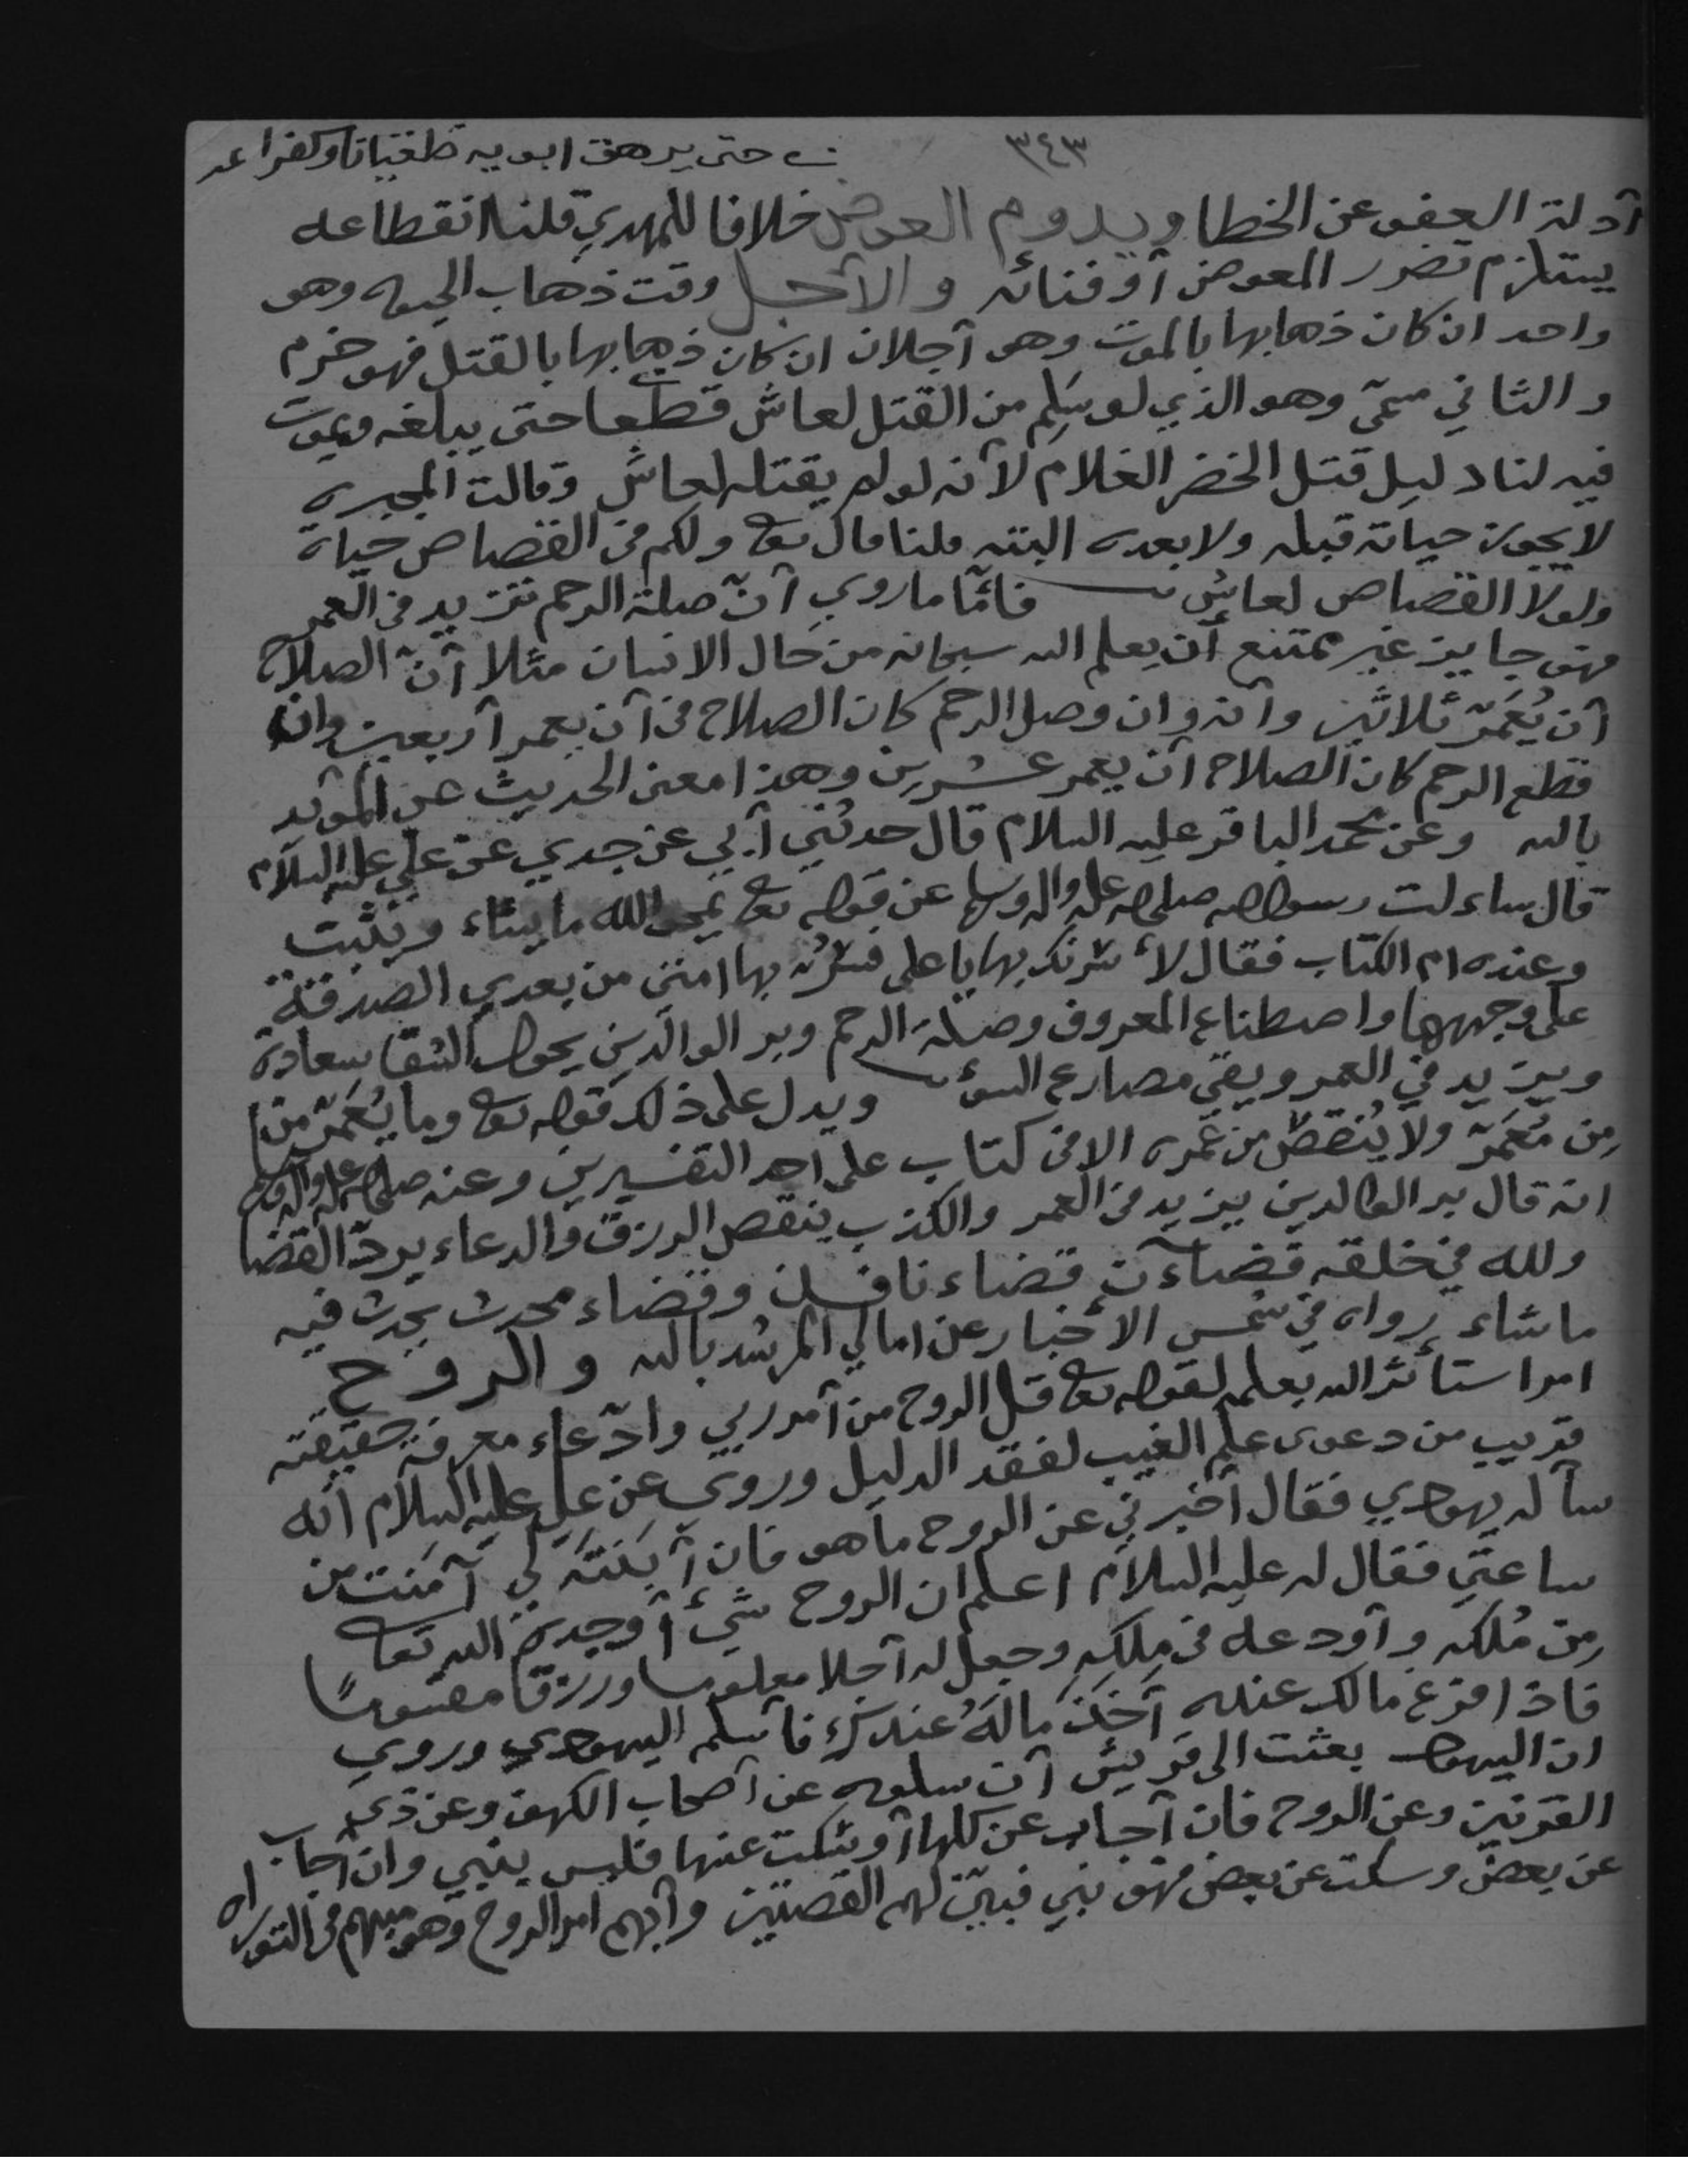 ٣٤٣
حتى يرهق ابويه طغيانا وكفرا
أدلة العفو عن الخطا ويدوم العوض خلافا للمهدي قلنا انقطاعه
يستلزم تضرر المعوض أو فنائه والأجل وقت ذهاب الحيوه وهو
واحد ان كان ذهابها بالموت وهو أجلان ان كان ذهابها بالقتل فهو خرم
والثاني مسمّى وهو الذي لو سَلِم من القتل لعاش قطعا حتى يبلغه ويموت
فيه لنا دليل قتل الخضر الغلام لأنه لو لم يقتله لعاش وقالت المجبره
لا يجوز حياته قبله ولا بعده البتته قلنا قال تعا ولكم في القصاص حياة
ولولا القصاص لعاش فأمّا ما روي أنّ صلة الرحم تزيد في العمر
فهو جايز غير ممتنع أن يعلم الله سبحانه من حال الانسان مثلا أنّ الصلاح
أن يُعَمّر ثلاثين وأنه وان وصل الرحم كان الصلاح في أن يعمر أربعين وان
قطع الرحم كان الصلاح أن يعمر عشرين وهذا معنى الحديث عن المؤيد
بالله وعن محمد الباقر عليه السلام قال حدثني أبي عن جدي عن علي عليه السلام
قال ساءلت رسول الله صلى الله عليه واله وسلم عن قوله تعا يمحو الله ما يشاء ويثبت
وعنده ام الكتاب فقال لأسُرنّك بها يا علي فسُرّ بها امتي من بعدي الصدقة
على وجهها واصطناع المعروف وصلة الرحم وبر الوالدين يحول الشقا سعادة
ويزيد في العمر ويقي مصارع السوء ويدل على ذلك قوله تعا وما يُعَمّر من
مِن مُعَمّرٍ ولا يُنقصُ من عُمره الا في كتاب على احد التفسيرين وعنه صلى الله عليه واله وسلم
انه قال بر الوالدين يزيد في العمر والكذب ينقص الرزق والدعاء يردّ القضا
ولله في خلقه قضاءان قضاء نافذ وقضاء محدث يحدث فيه
ما شاء رواه في شمس الأخبار عن امالي المرشد بالله والروح
امرا ستأثر الله بعلمه لقوله تعا قل الروح من أمر ربي وادّعاء معرفة حقيقته
قريب من دعوى علم الغيب لفقد الدليل وروي عن علي عليه السلام أنّه
سأله يهودي فقال أخبرني عن الروح ما هو فان أبَنتَه لي آمَنت من
ساعتي فقال له عليه السلام اعلم ان الروح شيء أوجده الله تعا
مِن مُلكه وأودعه في مِلكهِ وجعل له أجلا معلوما ورزقا مقسوما
فاذا افرغ مالك عنده أخَذ مالَهُ عندك فأسلم اليهودي وروي
ان اليهود بعثت الى قريش أن سلوه عن أصحاب الكهف وعن ذي
القرنين وعن الروح فان أجاب عن كلها أو سكت عنها فليس بنبي وان أجاب
عن بعض وسكت عن بعض فهو نبي فبيّن لهم القصتين وأبهم امر الروح وهو مبهم في التوراه